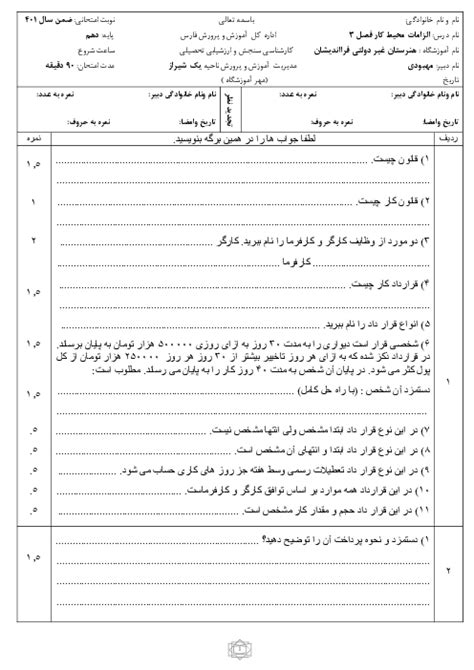 نام و نام خانوادگی:
باسمه تعالی
نوبت امتحانی: ضمن سال ۴۰۱
نام درس: الزامات محیط کار فصل ۳
اداره کل آموزش و پرورش فارس
پایه: دهم
نام آموزشگاه : هنرستان غیر دولتی فرااندیشان
کارشناسی سنجش و ارزشیابی تحصیلی
ساعت شروع
نام دبیر: مهبودی
مدیریت آموزش و پرورش ناحیه یک شیراز
مدت امتحان: ۹۰ دقیقه
تاریخ
(مهر آموزشگاه )
نام ونام خانوادگی دبیر:
نمره به عدد:
تجدید نظر
نام ونام خانوادگی دبیر:
نمره به عدد:
تاریخ وامضا:
نمره به حروف:
تاریخ وامضا:
نمره به حروف:
ردیف
لطفا جواب ها را در همین برگه بنویسید.
نمره
۱) قانون چیست.
۱,۵
۲) قانون کار چیست.
۱
۳) دو مورد از وظایف کارگر و کارفرما را نام ببرید. کارگر
۲
کارفرما
۴) قرارداد کار چیست.
۱,۵
۵) انواع قرار داد را نام ببرید.
۶) شخصی قرار است دیواری را به مدت ۳۰ روز به ازای روزی ۵۰۰۰۰۰ هزار تومان به پایان برساند.
۱,۵
در قرارداد ذکر شده که به ازای هر روز تاخیر بیشتر از ۳۰ روز هر روز ۲۵۰۰۰۰ هزار تومان از کل
پول کثر می شود. در پایان آن شخص به مدت ۴۰ روز کار را به پایان می رساند. مطلوب است:
۱
دستمزد آن شخص : (با راه حل کامل)
۱,۵
۷) در این نوع قرار داد ابتدا مشخص ولی انتها مشخص نیست.
.۵
۸) در این نوع قرار داد ابتدا و انتهای آن مشخص است.
.۵
۹) در این نوع قرار داد تعطیلات رسمی وسط هفته جز روز های کاری حساب می شود.
.۵
۱۰) در این قرارداد همه موارد بر اساس توافق کارگر و کارفرماست.
.۵
۱۱) در این قرار داد حجم و مقدار کار مشخص است.
.۵
۱) دستمزد و نحوه پرداخت آن را توضیح دهید؟
۱,۵
۲
۱